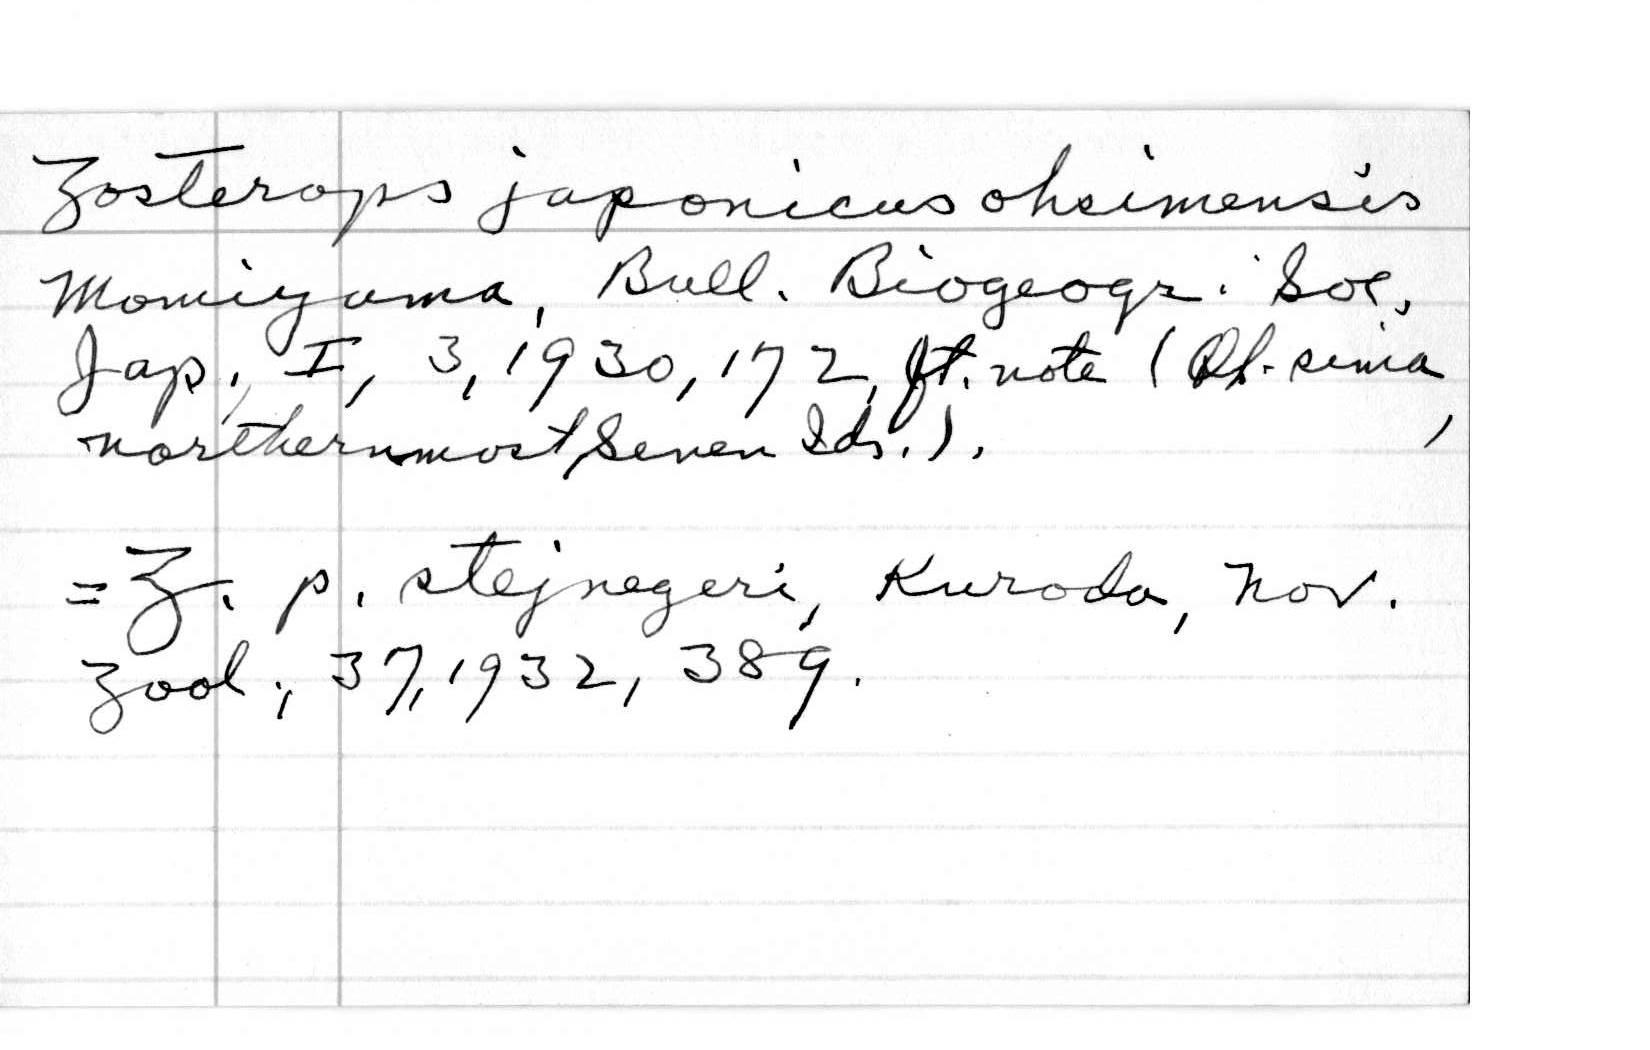 Zosterops japonicus ohsimensis
Momiyama, Bull. Biogeogr. Soc.
Jap., I, 3, 1930, 172, ft. note (Oh-sima,
northernmost, Seven Ids.).
= Z. p. stejnegeri, Kuroda, Nov.
Zool., 37, 1932, 389.